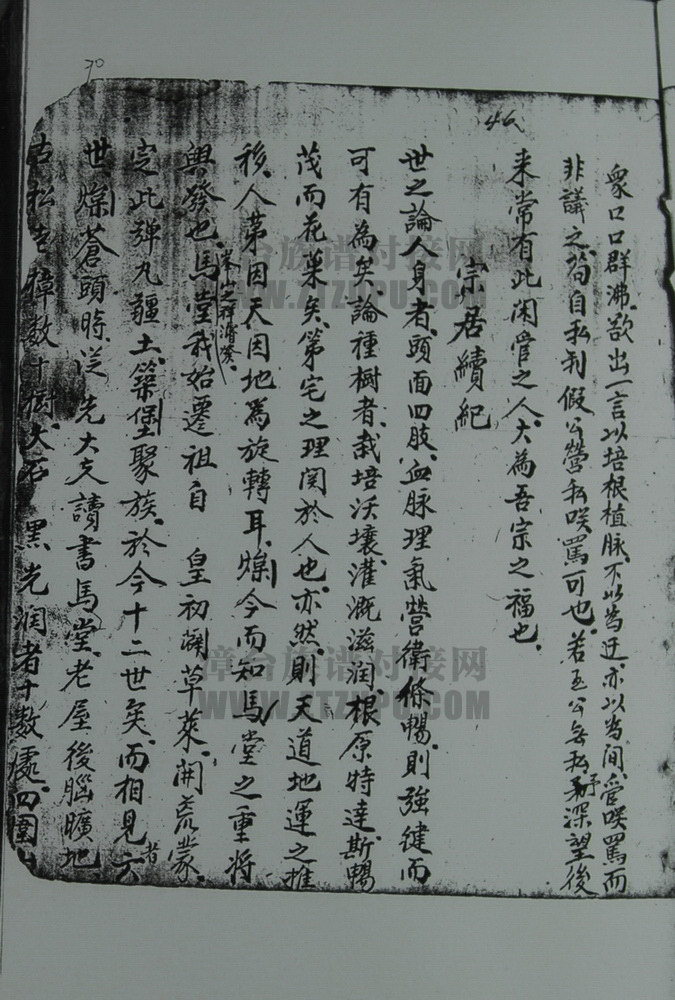 70
46
衆口口群沸,欲出一言以培根植脉,不以為迂,亦以為间,管咲罵而
非議之,苟自私利假公營私,咲罵可也,若至公無私,予深望後
来常有此闲管之人,大為吾宗之福也,
宗居續紀
世之論人身者,頭面四肢,血脉理氣營衛條暢,則強健而
可有為矣,論種樹者,栽培沃壤,灌溉滋润,根原特達,斯暢
茂而花菓矣,第宅之理関於人也,亦然,則天道地運之推
移,人第因天因地為旋轉耳,爛今而知馬堂之重將
興發也,馬堂我始遷祖自 皇初闢草萊,開荒蒙,
定此弹丸疆土,築堡聚族,於今十二世矣,而相見者六
世,爛蒼頭時,从先大夫讀書馬堂,老屋後腦曠地
古松古樟数十樹,大石黑光润者十数處,四圍
漳台族谱对接网
WWW.ZTZUPU.COM
漳台族谱对接网
WWW.ZTZUPU.COM